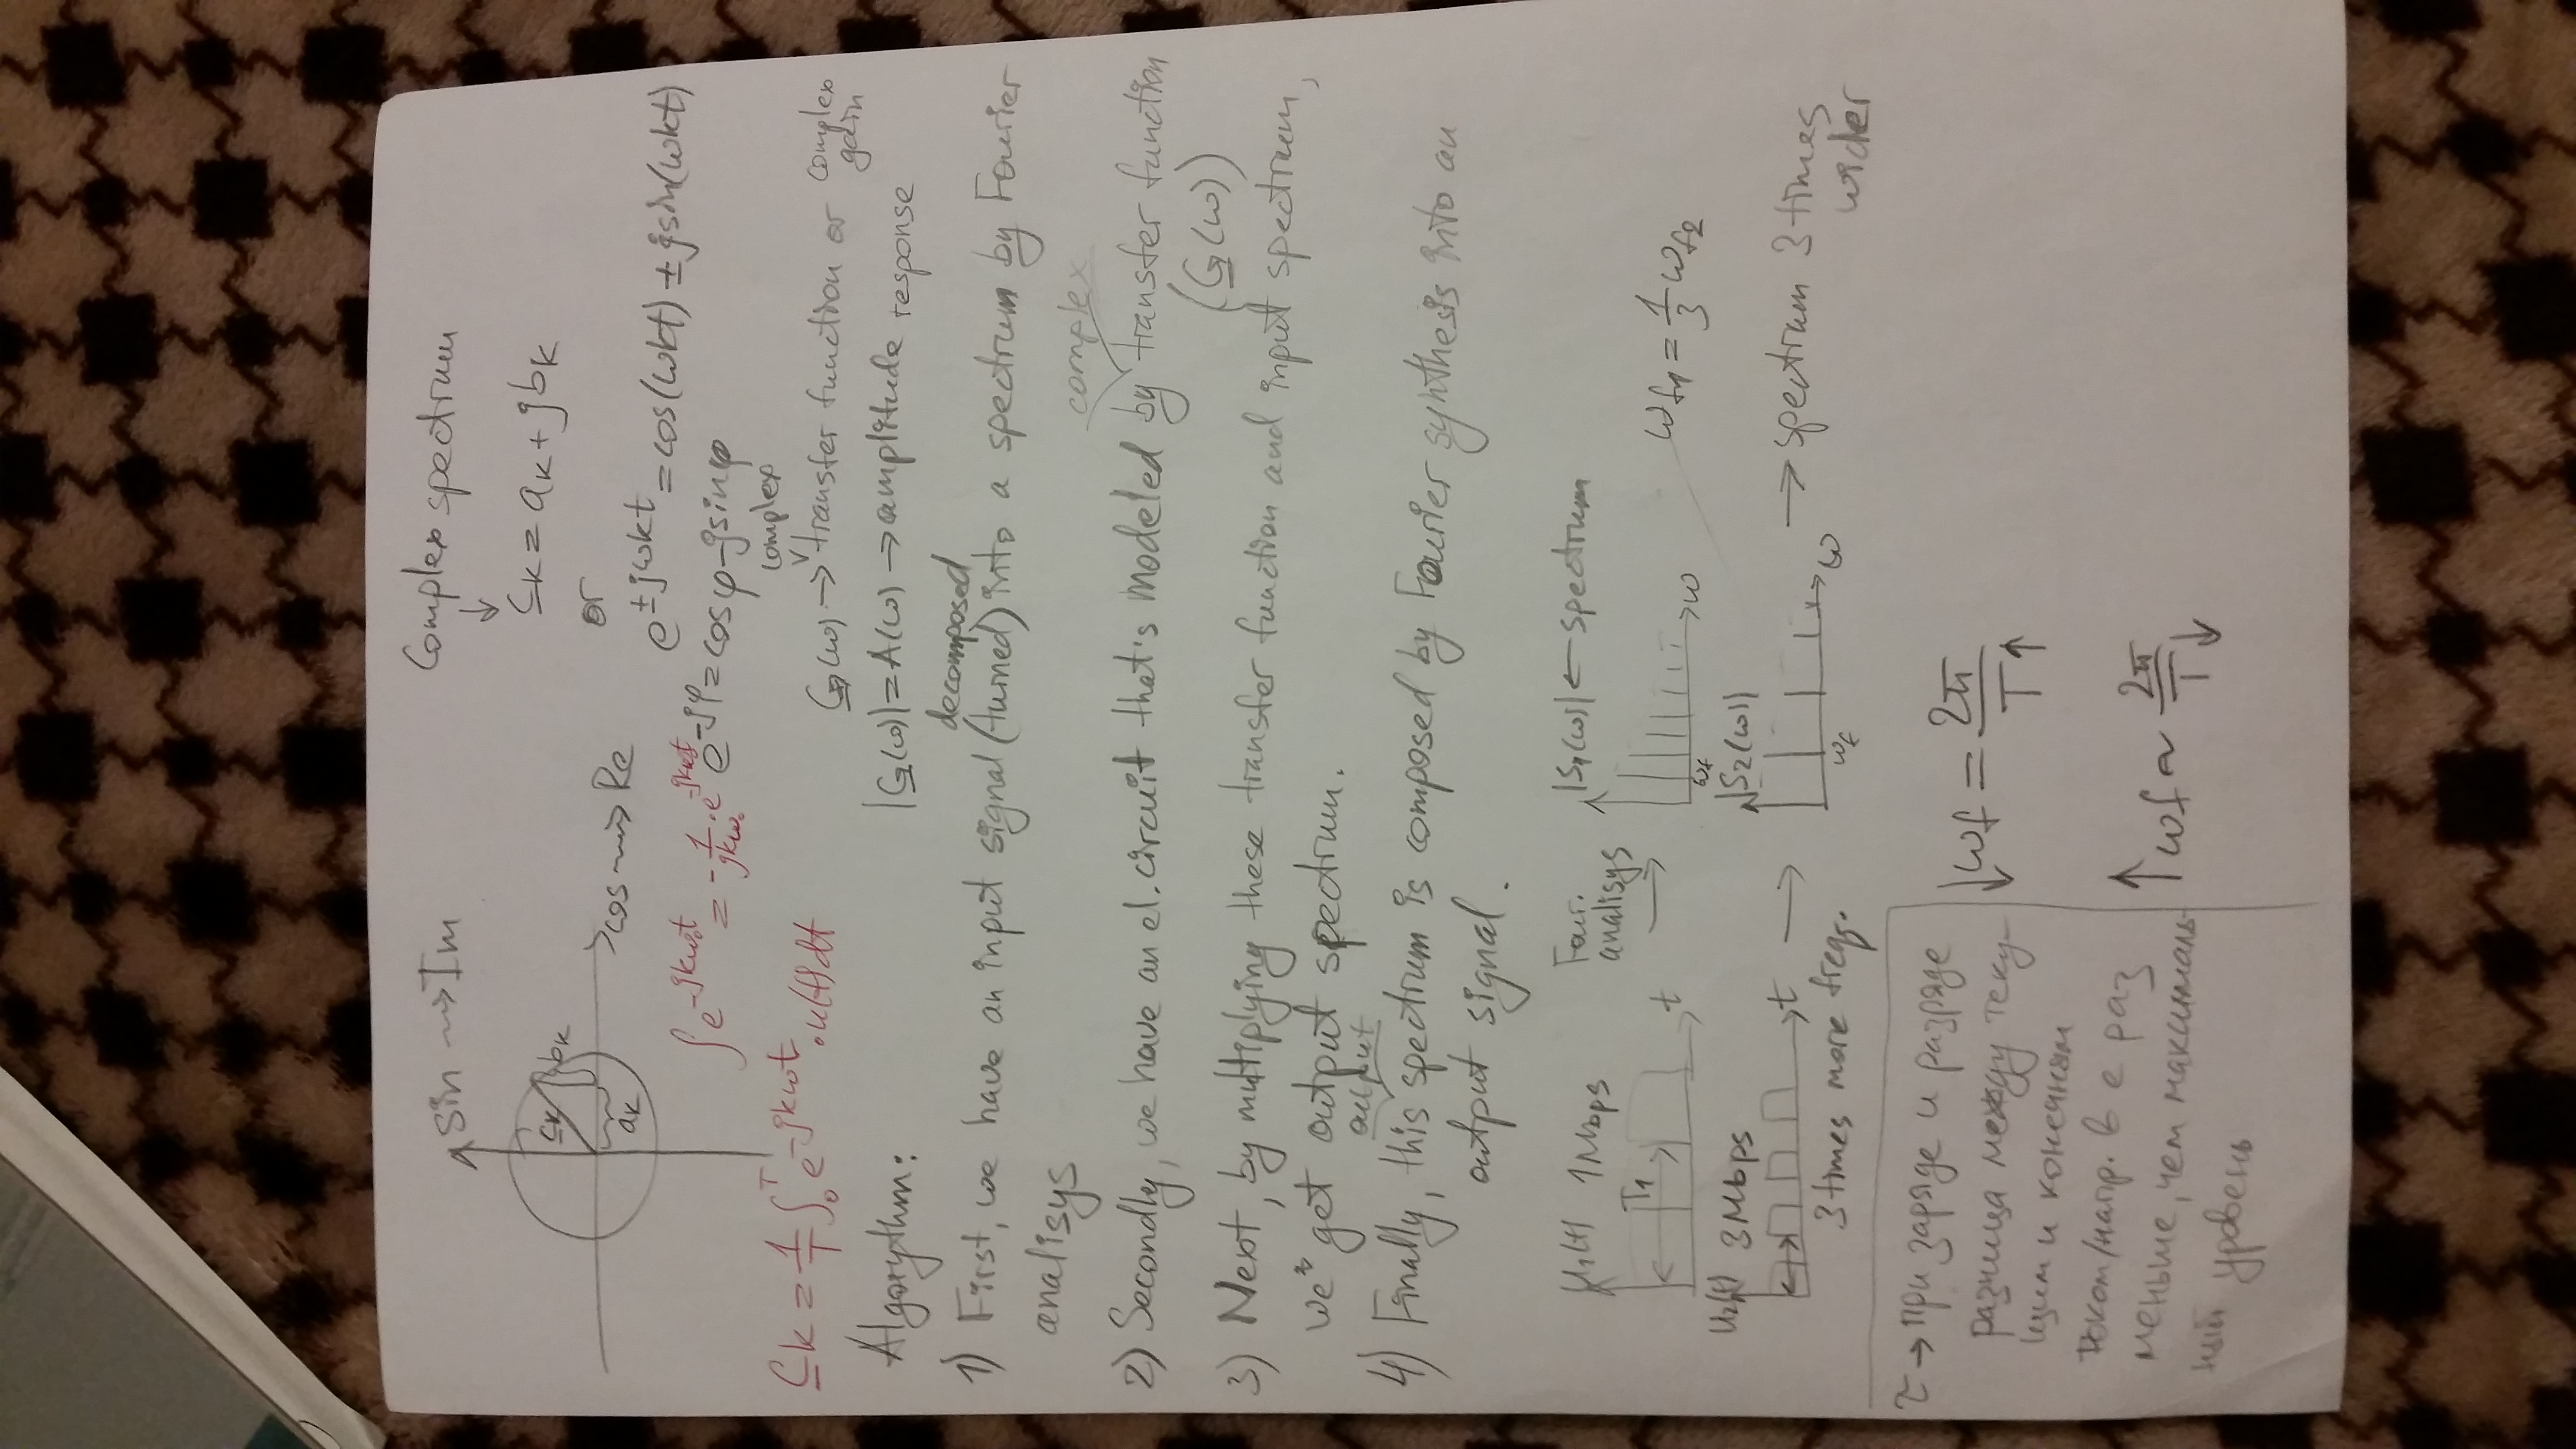 sin ⟿ Im
Complex spectrum
↓
c̲k = ak + jbk
or
c̲k
bk
ak
cos ⟿ Re
e^±jωkt = cos(ωkt) ± jsin(ωkt)
∫e^-jkω₀t = -1/jkω₀ · e^-jkω₀t
e^-jφ = cosφ - jsinφ
C̲k = 1/T ∫₀ᵀ e^-jkωt · u(t)dt
complex
G̲(ω) → transfer function or complex gain
|G̲(ω)| = A(ω) → amplitude response
Algorythm:
decomposed
1) First, we have an input signal (turned) into a spectrum by Fourier
analisys
complex
2) Secondly, we have an el. circuit that's modeled by transfer function
(G̲(ω))
3) Next, by multiplying these transfer function and input spectrum,
we get output spectrum.
output
4) Finally, this spectrum is composed by Fourier synthesis into an
output signal.
u₁(t) 1Mbps
T₁
t
Four.
analisys
→
|S₁(ω)| ← spectrum
ωf
ω
ωf1 = 1/3 ωf2
u₂(t) 3Mbps
t
3 times more freq.
→
|S₂(ω)|
ωf
ω
→ spectrum 3 times
wider
τ → при заряде и разряде
разница между теку-
щим и конечным
током/напр. в е раз
меньше, чем максималь-
ный уровень
↓ωf = 2π/T↑
↑ωf ~ 2π/T↓